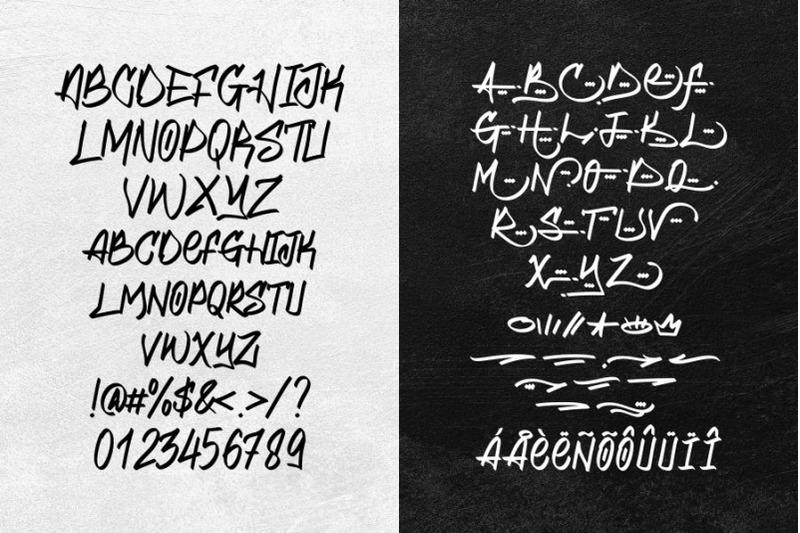 ABCDEFGHIJK
LMNOPQRSTU
VWXYZ
ABCDeFGHIJK
LMNOPQRSTU
VWXYZ
!@#%$&<.>/?
0123456789
ABCDeF
GHIJKL
MNOPQ
RSTUV
XYZ
ÁÅèëÑÕÔÛÜÏÎ